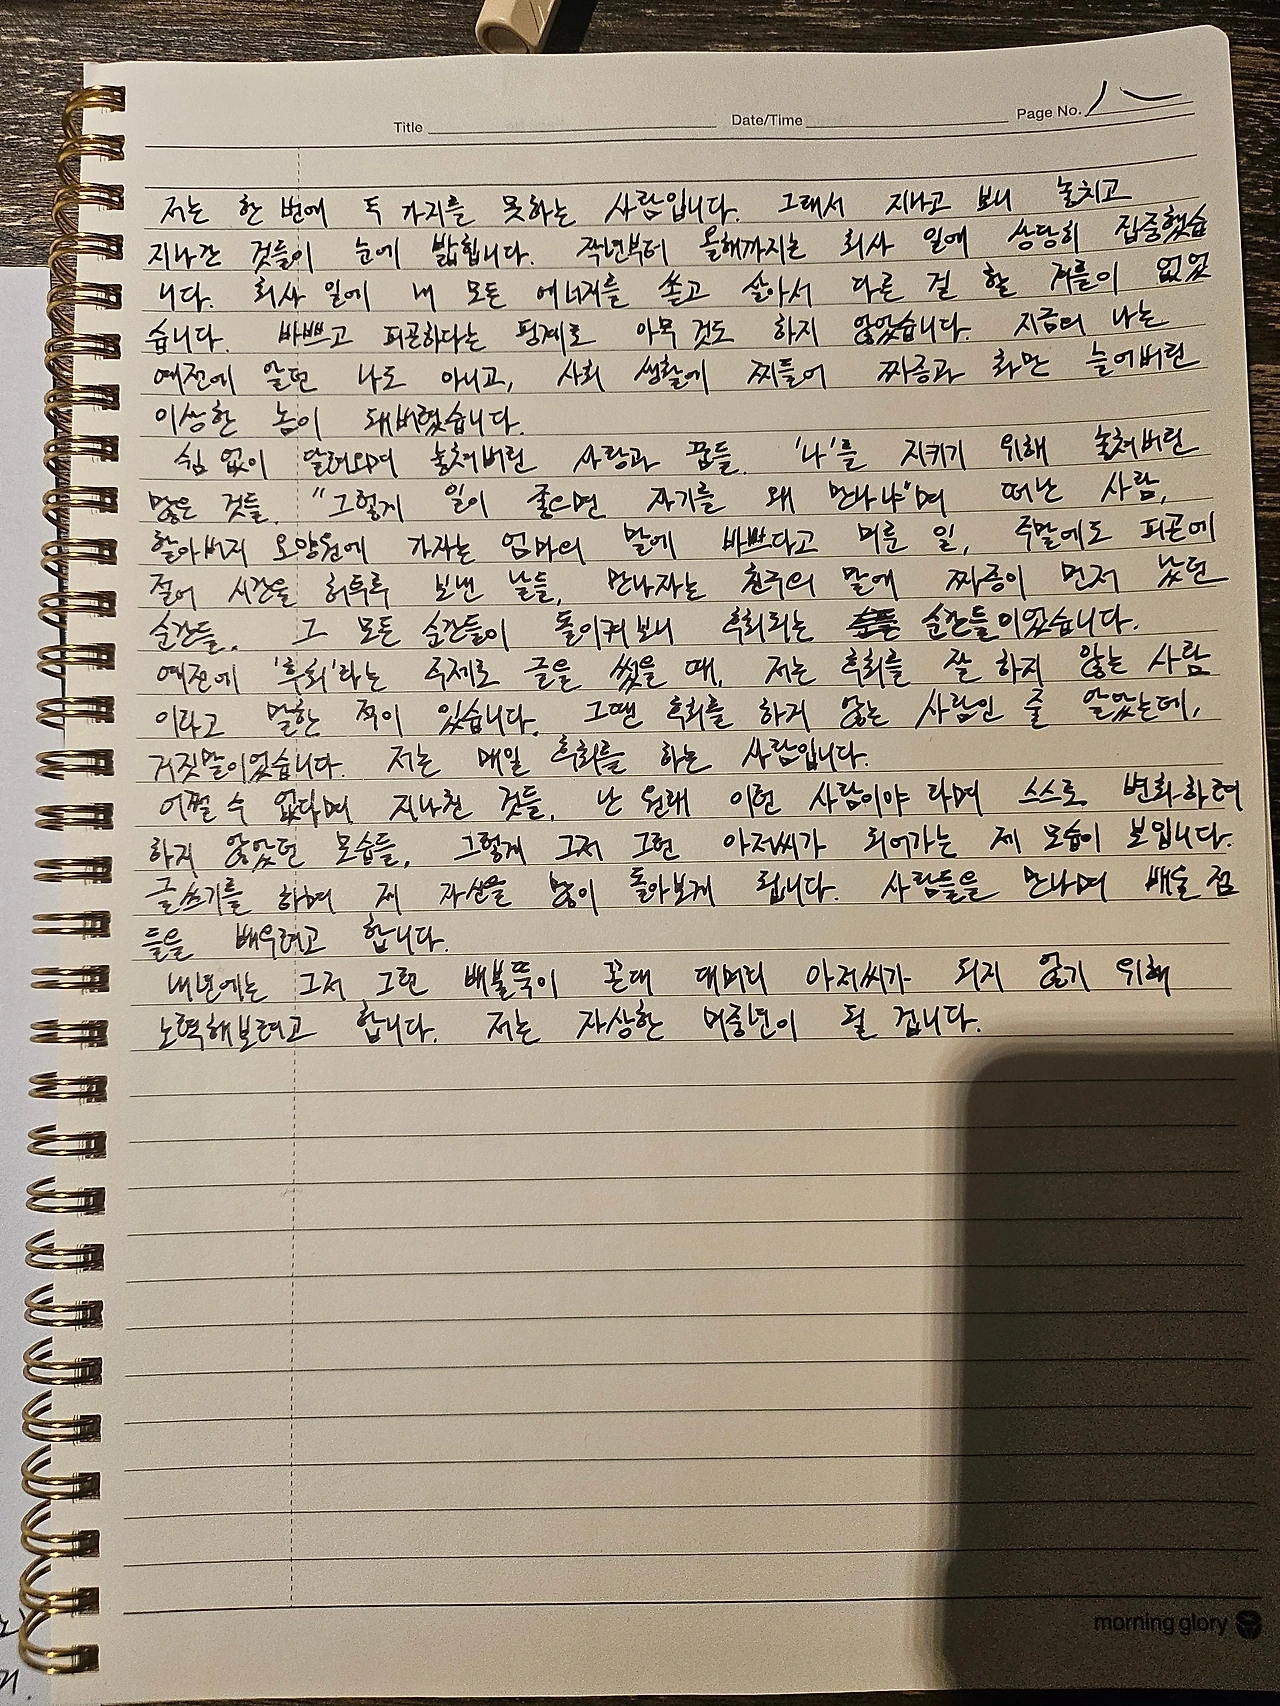 Title
Date/Time
Page No.
저는 한 번에 두 가지를 못하는 사람입니다. 그래서 지나고 보니 놓치고
지나간 것들이 눈에 밟힙니다. 작년부터 올해까지는 회사 일에 상당히 집중했습
니다. 회사 일에 내 모든 에너지를 쏟고 살아서 다른 걸 할 겨를이 없었
습니다. 바쁘고 피곤하다는 핑계로 아무 것도 하지 않았습니다. 지금의 나는
예전에 알던 나도 아니고, 사회 생활에 찌들어 짜증과 화만 늘어버린
이상한 놈이 돼버렸습니다.
쉼 없이 달려오며 놓쳐버린 사랑과 꿈들. '나'를 지키기 위해 놓쳐버린
많은 것들. "그렇게 일이 좋으면 자기를 왜 만나냐"며 떠난 사람,
할아버지 요양원에 가자는 엄마의 말에 바쁘다고 미룬 일, 주말에도 피곤에
절어 시간을 허투루 보낸 날들, 만나자는 친구의 말에 짜증이 먼저 났던
순간들. 그 모든 순간들이 돌이켜보니 후회되는 순간들이었습니다.
예전에 '후회'라는 주제로 글을 썼을 때, 저는 후회를 잘 하지 않는 사람
이라고 말한 적이 있습니다. 그땐 후회를 하지 않는 사람인 줄 알았는데,
거짓말이었습니다. 저는 매일 후회를 하는 사람입니다.
어쩔 수 없다며 지나친 것들, 난 원래 이런 사람이야 라며 스스로 변화하려
하지 않았던 모습들, 그렇게 그저 그런 아저씨가 되어가는 제 모습이 보입니다.
글쓰기를 하며 제 자신을 많이 돌아보게 됩니다. 사람들을 만나며 배울 점
들을 배우려고 합니다.
내년에는 그저 그런 배불뚝이 꼰대 대머리 아저씨가 되지 않기 위해
노력해보려고 합니다. 저는 자상한 미중년이 될 겁니다.
morning glory